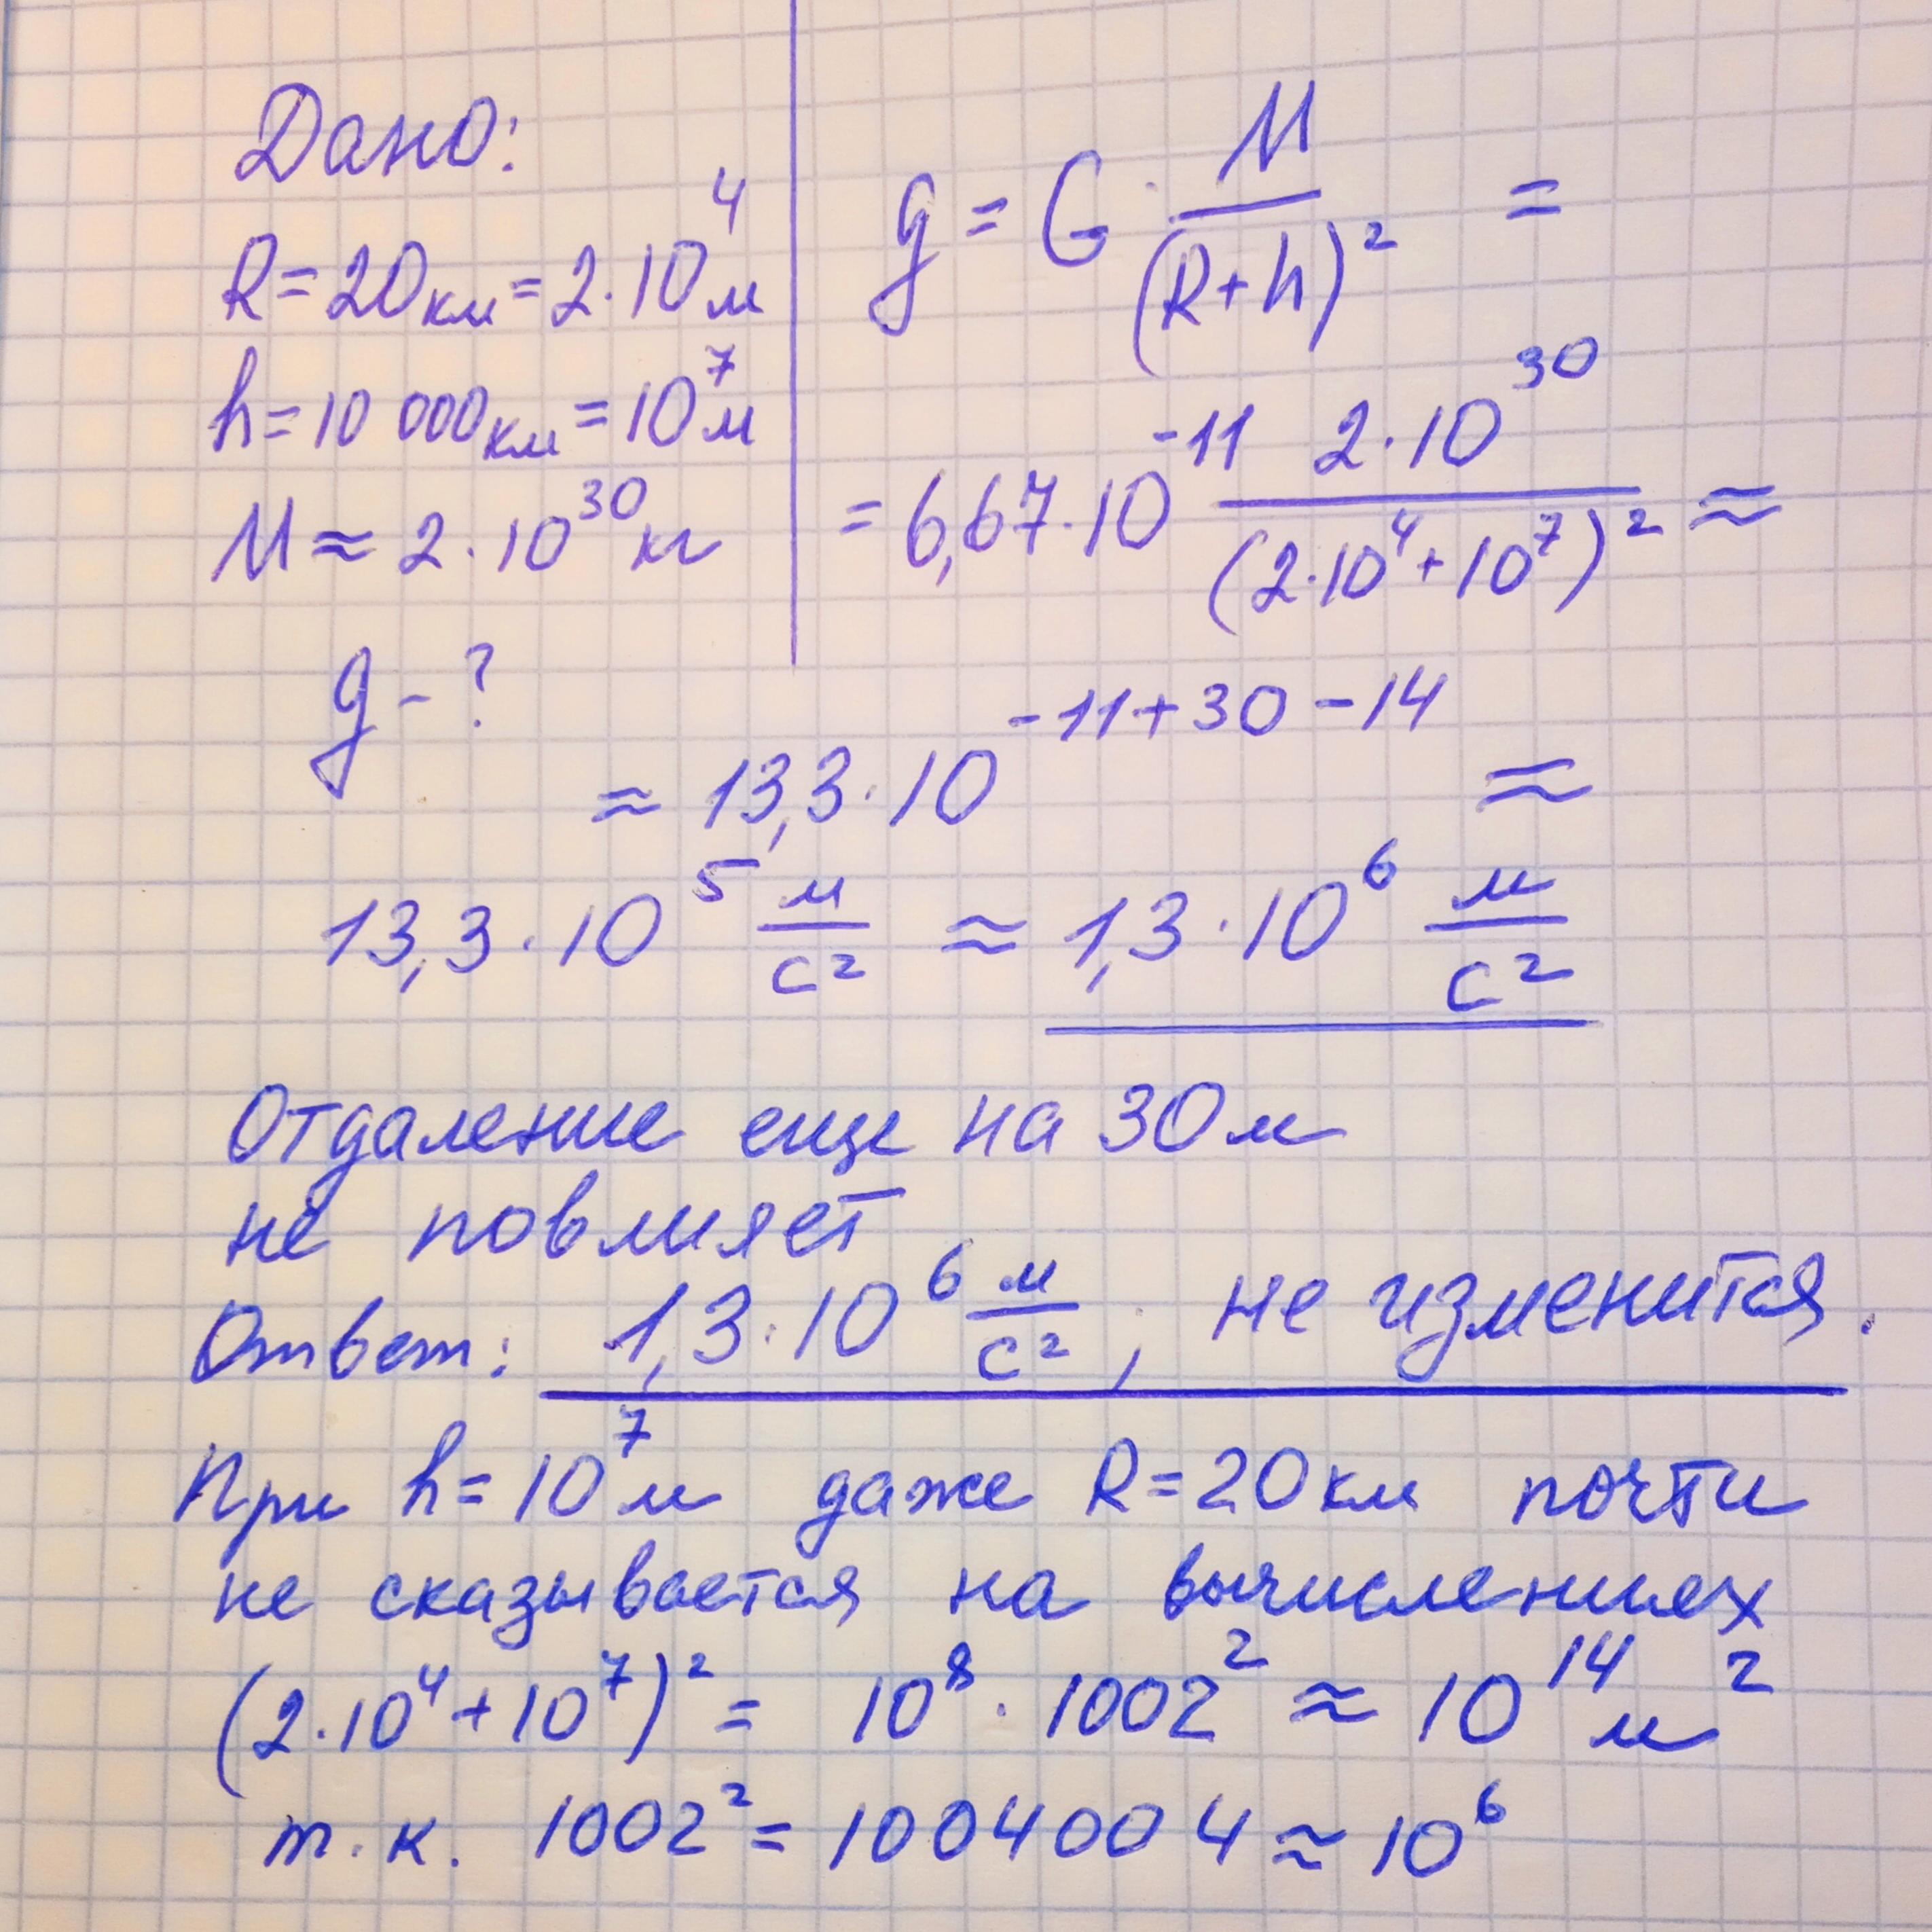 Дано:
R = 20 км = 2·10⁴ м
h = 10 000 км = 10⁷ м
M ≈ 2·10³⁰ кг
g - ?
g = G · M / (R+h)² =
= 6,67·10⁻¹¹ 2·10³⁰ / (2·10⁴+10⁷)² ≈
≈ 13,3·10⁻¹¹⁺³⁰⁻¹⁴ ≈
13,3·10⁵ м/с² ≈ 1,3·10⁶ м/с²
Отдаление еще на 30 м
не повлияет
Ответ: 1,3·10⁶ м/с²; не изменится.
При h = 10⁷ м даже R = 20 км почти
не сказывается на вычислениях
(2·10⁴+10⁷)² = 10⁸ · 1002² ≈ 10¹⁴ м²
т.к. 1002² = 1004004 ≈ 10⁶